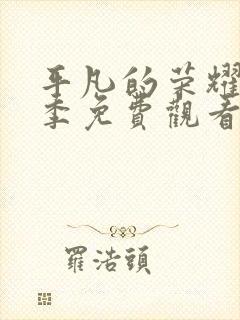 平凡的荣耀
季免費觀看
羅浩頭